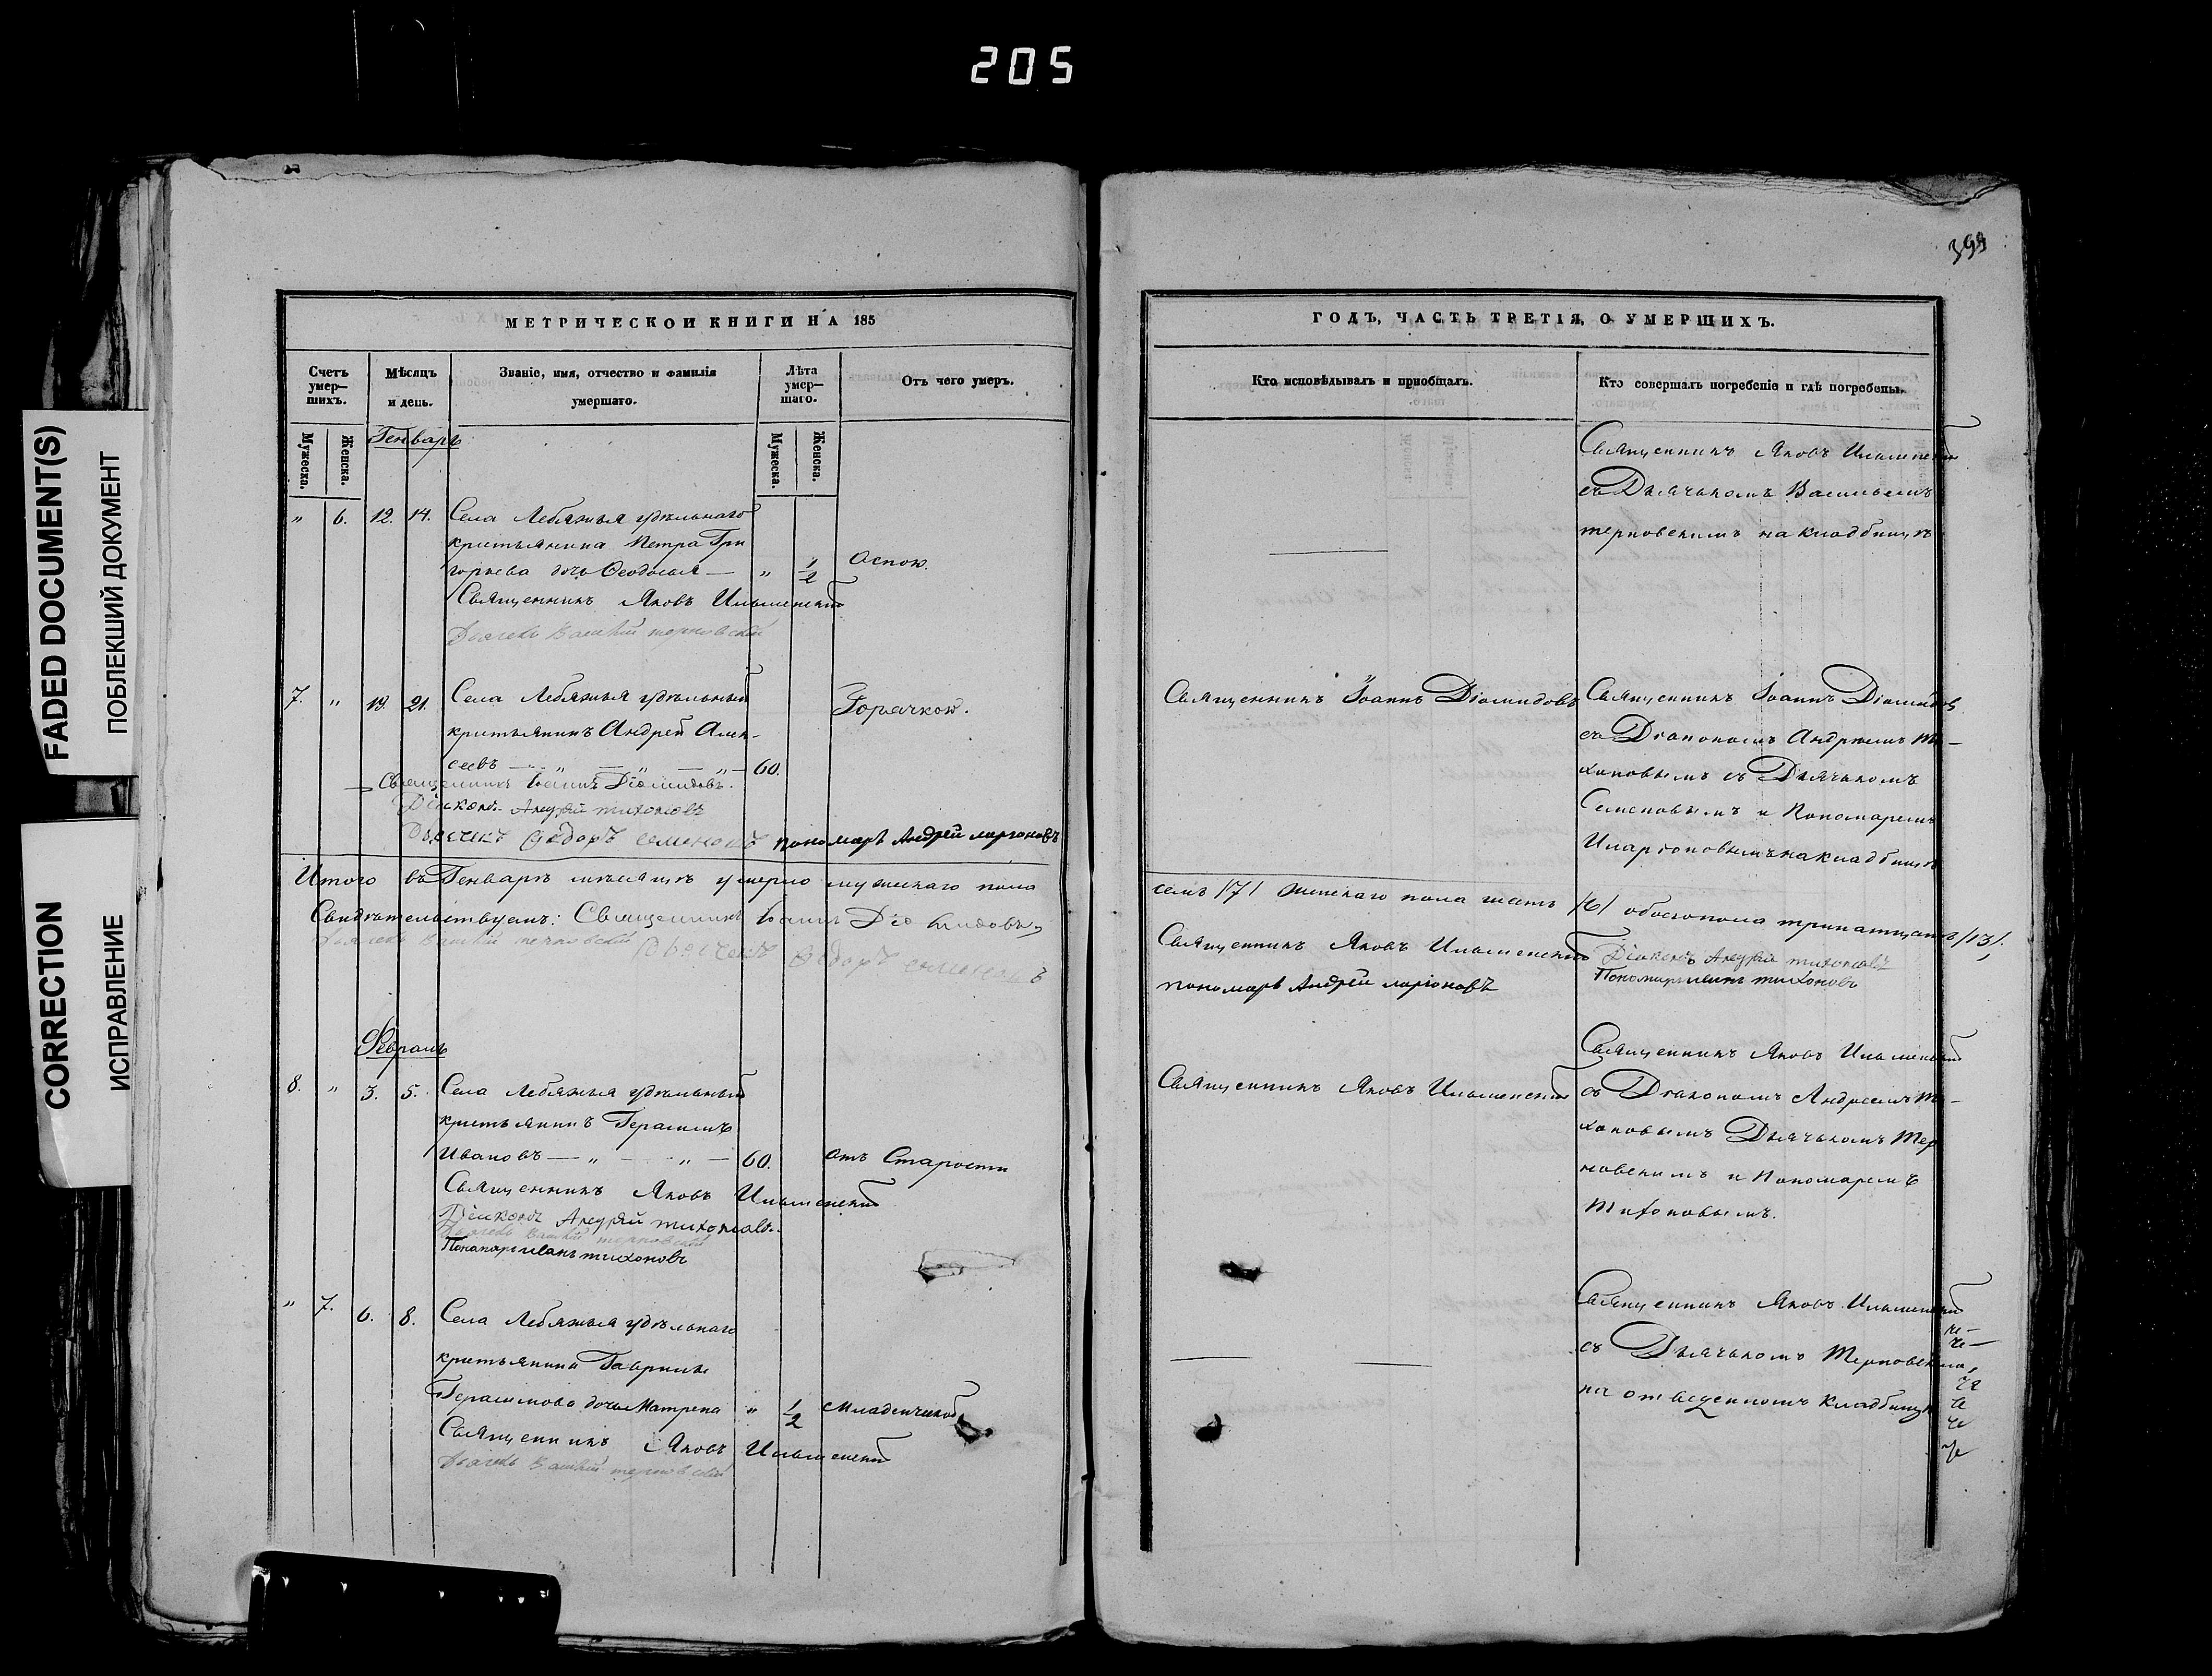 205
FADED DOCUMENT(S)
ПОБЛЕКШИЙ ДОКУМЕНТ
CORRECTION
ИСПРАВЛЕНИЕ
МЕТРИЧЕСКОЙ КНИГИ НА 185
Счетъ умер—шихъ.
Мѣсяцъ и день.
Званіе, имя, отчество и фамилія умершаго.
Лѣта умер—шаго.
Отъ чего умеръ.
Мужеска.
Женска.
Мужеска.
Женска.
Генварь
" 6. 12. 14. Села Лебяжья удѣльнаго
крестьянина Петра Гри
горьева дочь Ѳеодосья — " 1/2 Оспою.
Священникъ Яковъ Ильменскій
Дьячекъ Василій терновскій
7. " 19. 21. Села Лебяжья удѣльный Горячкою.
крестьянинъ Андрей Алек-
сеевъ — " — " — " — 60.
Священникъ Іоаннъ Діомидовъ.
Діаконъ Андрей тихоновъ
Дьячекъ Ѳедоръ семеновъ пономарь Андрей ларіоновъ
Итого въ Генварѣ мѣсяцѣ умерло мужескаго пола
Свидѣтельствуемъ: Священникъ Іоаннъ Діомидовъ,
Дьячекъ Василій терновскій Дьячекъ Ѳедоръ семеновъ
Февраль
8. " 3. 5. Села Лебяжья удѣльный
крестьянинъ Герасимъ
Ивановъ — " — " — 60. отъ Старости
Священникъ Яковъ Ильменскій
Діаконъ Андрей тихоновъ.
Дьячекъ Василій терновскій
Пономарь иванъ тихоновъ
" 7. 6. 8. Села Лебяжья удѣльнаго
крестьянина Гаврилы
Герасимова дочь Матрена " 1/2 Младенческой
Священникъ Яковъ Ильменскій
Дьячекъ Василій терновскій
399
ГОДЪ, ЧАСТЬ ТРЕТІЯ, О УМЕРШИХЪ.
Кто исповѣдывалъ и пріобщалъ.
Кто совершалъ погребеніе и гдѣ погребены.
Священникъ Яковъ Ильменскій
съ Дьячькомъ Васильемъ
терновскимъ на кладбищѣ
Священникъ Іоаннъ Діомидовъ
Священникъ Іоаннъ Діомидов
съ Діакономъ Андреемъ Ти-
хоновымъ съ Дьячькомъ
Семеновымъ и Пономаремъ
Иларіоновымъ на кладбищѣ
семь /7/ женскаго пола шесть /6/ обоего пола тринатцать /13/.
Священникъ Яковъ Ильменскій Діаконъ Андрей тихоновъ
пономарь Андрей ларіоновъ Пономарь иванъ тихоновъ
Священникъ Яковъ Ильменскій
Священникъ Яковъ Ильменскій
съ Діакономъ Андреемъ Ти-
хоновымъ Дьячькомъ Тер
новскимъ и Пономаремъ
Тихоновымъ.
Священникъ Яковъ Ильменскій
съ Дьячькомъ Терновскимъ,
на отведенномъ кладбищѣ